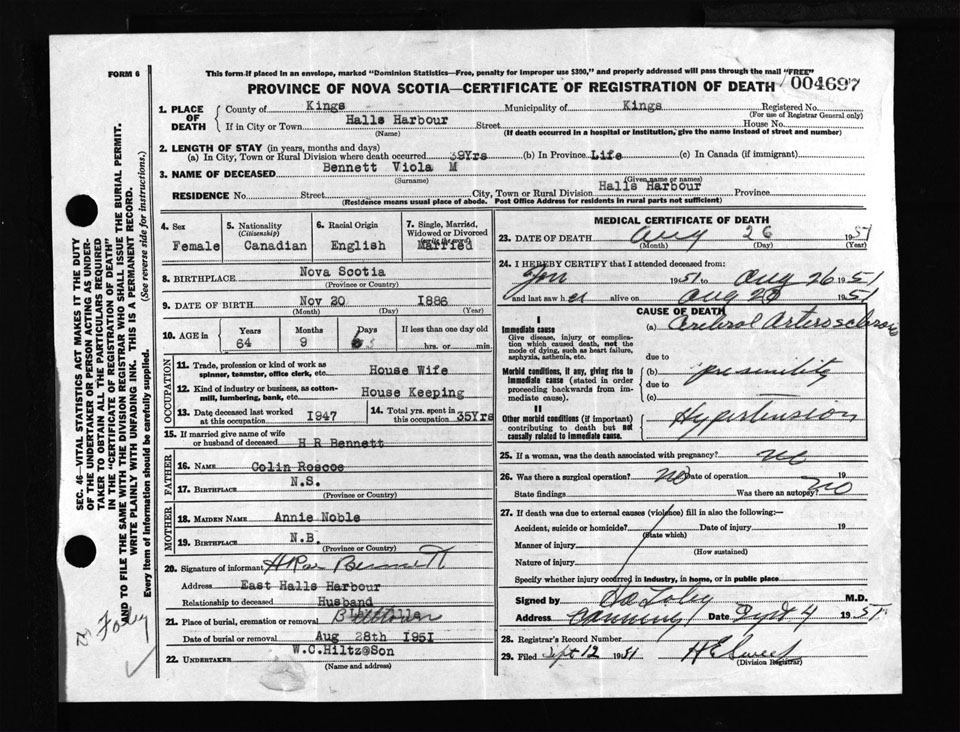 FORM 6
This form if placed in an envelope, marked "Dominion Statistics—Free, penalty for improper use $300," and properly addressed will pass through the mail "FREE"
PROVINCE OF NOVA SCOTIA—CERTIFICATE OF REGISTRATION OF DEATH 004697
1. PLACE OF DEATH
County of Kings Municipality of Kings Registered No.
(For use of Registrar General only)
If in City or Town Halls Harbour Street House No.
(Name) (If death occurred in a hospital or institution, give the name instead of street and number)
2. LENGTH OF STAY (in years, months and days)
(a) In City, Town or Rural Division where death occurred 39Yrs (b) In Province Life (c) In Canada (if immigrant)
3. NAME OF DECEASED Bennett Viola M
(Surname) (Given name or names)
RESIDENCE No. Street City, Town or Rural Division Halls Harbour Province
(Residence means usual place of abode. Post Office Address for residents in rural parts not sufficient)
4. Sex Female
5. Nationality (Citizenship) Canadian
6. Racial Origin English
7. Single, Married, Widowed or Divorced (write the word) Married
8. BIRTHPLACE Nova Scotia
(Province or Country)
9. DATE OF BIRTH Nov 20 1886
(Month) (Day) (Year)
10. AGE in Years Months Days If less than one day old
64 9 hrs. or min.
OCCUPATION
11. Trade, profession or kind of work as spinner, teamster, office clerk, etc. House Wife
12. Kind of industry or business, as cotton-mill, lumbering, bank, etc. House Keeping
13. Date deceased last worked at this occupation 1947
14. Total yrs. spent in this occupation 35Yrs
15. If married give name of wife or husband of deceased H R Bennett
FATHER
16. NAME Colin Roscoe
17. BIRTHPLACE N.S.
(Province or Country)
MOTHER
18. MAIDEN NAME Annie Noble
19. BIRTHPLACE N.B.
(Province or Country)
20. Signature of informant Bennett
Address East Halls Harbour
Relationship to deceased Husband
21. Place of burial, cremation or removal
Date of burial or removal Aug 28th 1951
22. UNDERTAKER W.C.Hiltz@Son
(Name and address)
MEDICAL CERTIFICATE OF DEATH
23. DATE OF DEATH Aug 26 1951
(Month) (Day) (Year)
24. I HEREBY CERTIFY that I attended deceased from:
1951 to Aug 26 1951
and last saw her alive on Aug 1951
CAUSE OF DEATH
I
Immediate cause
Give disease, injury or complication which caused death, not the mode of dying, such as heart failure, asphyxia, asthenia, etc.
(a) Cerebral Arterosclerosis
due to
Morbid conditions, if any, giving rise to immediate cause (stated in order proceeding backwards from immediate cause).
(b)
due to
(c)
II
Other morbid conditions (if important) contributing to death but not causally related to immediate cause.
Hypertension
25. If a woman, was the death associated with pregnancy? no
26. Was there a surgical operation? no Date of operation 19
State findings Was there an autopsy? no
27. If death was due to external causes (violence) fill in also the following:—
Accident, suicide or homicide? Date of injury 19
(State which)
Manner of injury
(How sustained)
Nature of injury
Specify whether injury occurred in industry, in home, or in public place
Signed by M.D.
Address Canning Date Sept 4 1951
28. Registrar's Record Number
29. Filed Sept 12 1951 H E Sweet
(Division Registrar)
SEC. 46—VITAL STATISTICS ACT MAKES IT THE DUTY
OF THE UNDERTAKER OR PERSON ACTING AS UNDER-
TAKER TO OBTAIN ALL THE PARTICULARS REQUIRED
IN THE "CERTIFICATE OF REGISTRATION OF DEATH"
AND TO FILE THE SAME WITH THE DIVISION REGISTRAR WHO SHALL ISSUE THE BURIAL PERMIT.
WRITE PLAINLY WITH UNFADING INK. THIS IS A PERMANENT RECORD.
Every item of information should be carefully supplied. (See reverse side for instructions.)
Foley